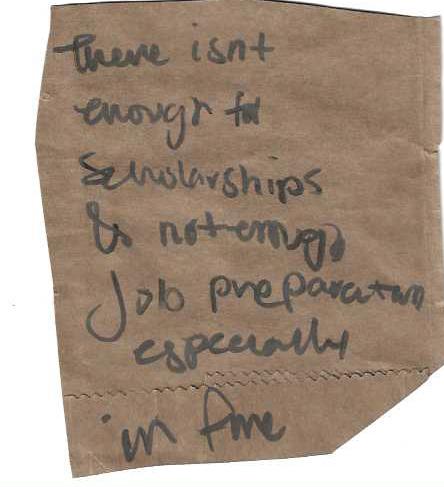 there isnt
enough for
scholarships
& not enough
Job preparation
especially
in fine